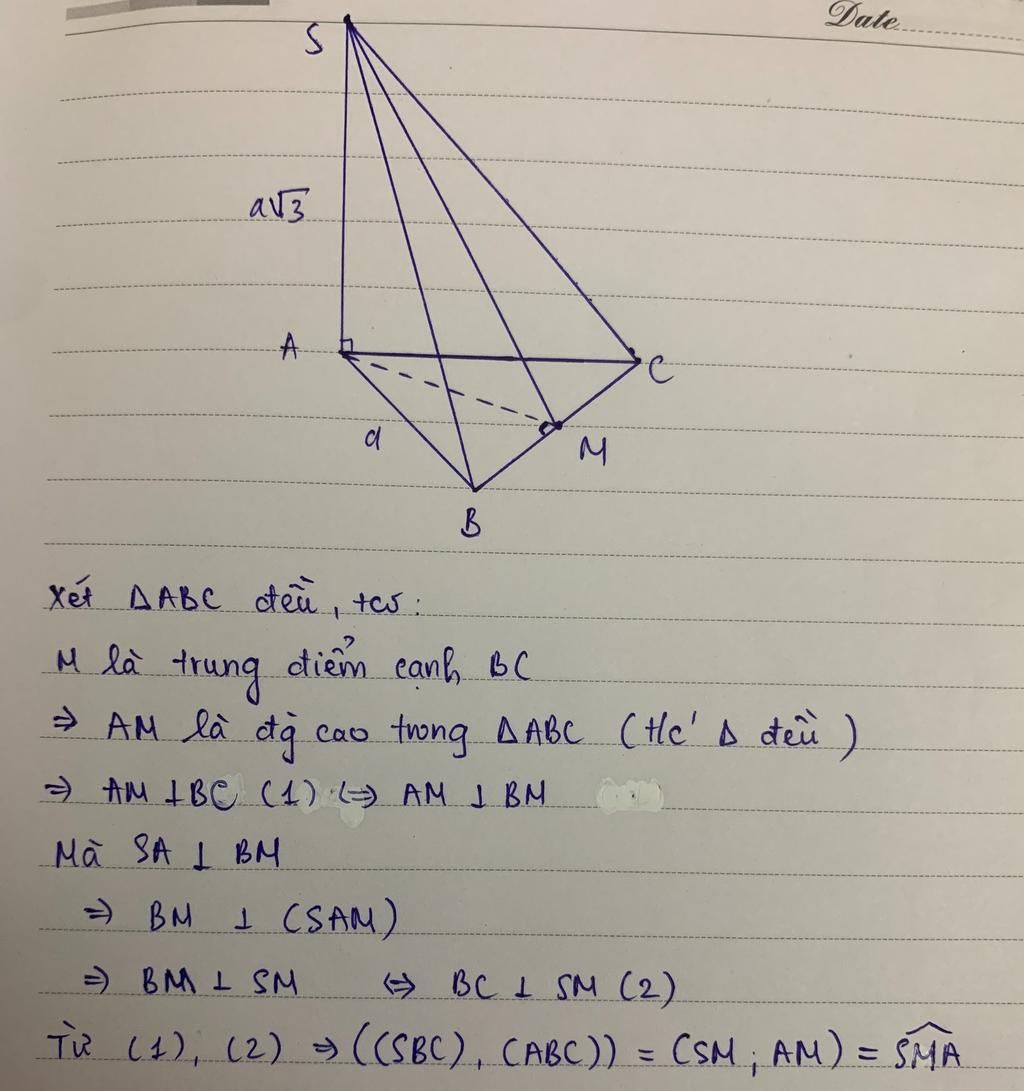 Date
S
a√3
A
C
a
M
B
Xét ΔABC đều, tcó:
M là trung điểm cạnh BC
⇒ AM là đg cao trong ΔABC (t/c' Δ đều)
⇒ AM ⊥ BC (1) ⇔ AM ⊥ BM
Mà SA ⊥ BM
⇒ BM ⊥ (SAM)
⇒ BM ⊥ SM ⇔ BC ⊥ SM (2)
Từ (1), (2) ⇒ ((SBC), (ABC)) = (SM ; AM) = \widehat{SMA}